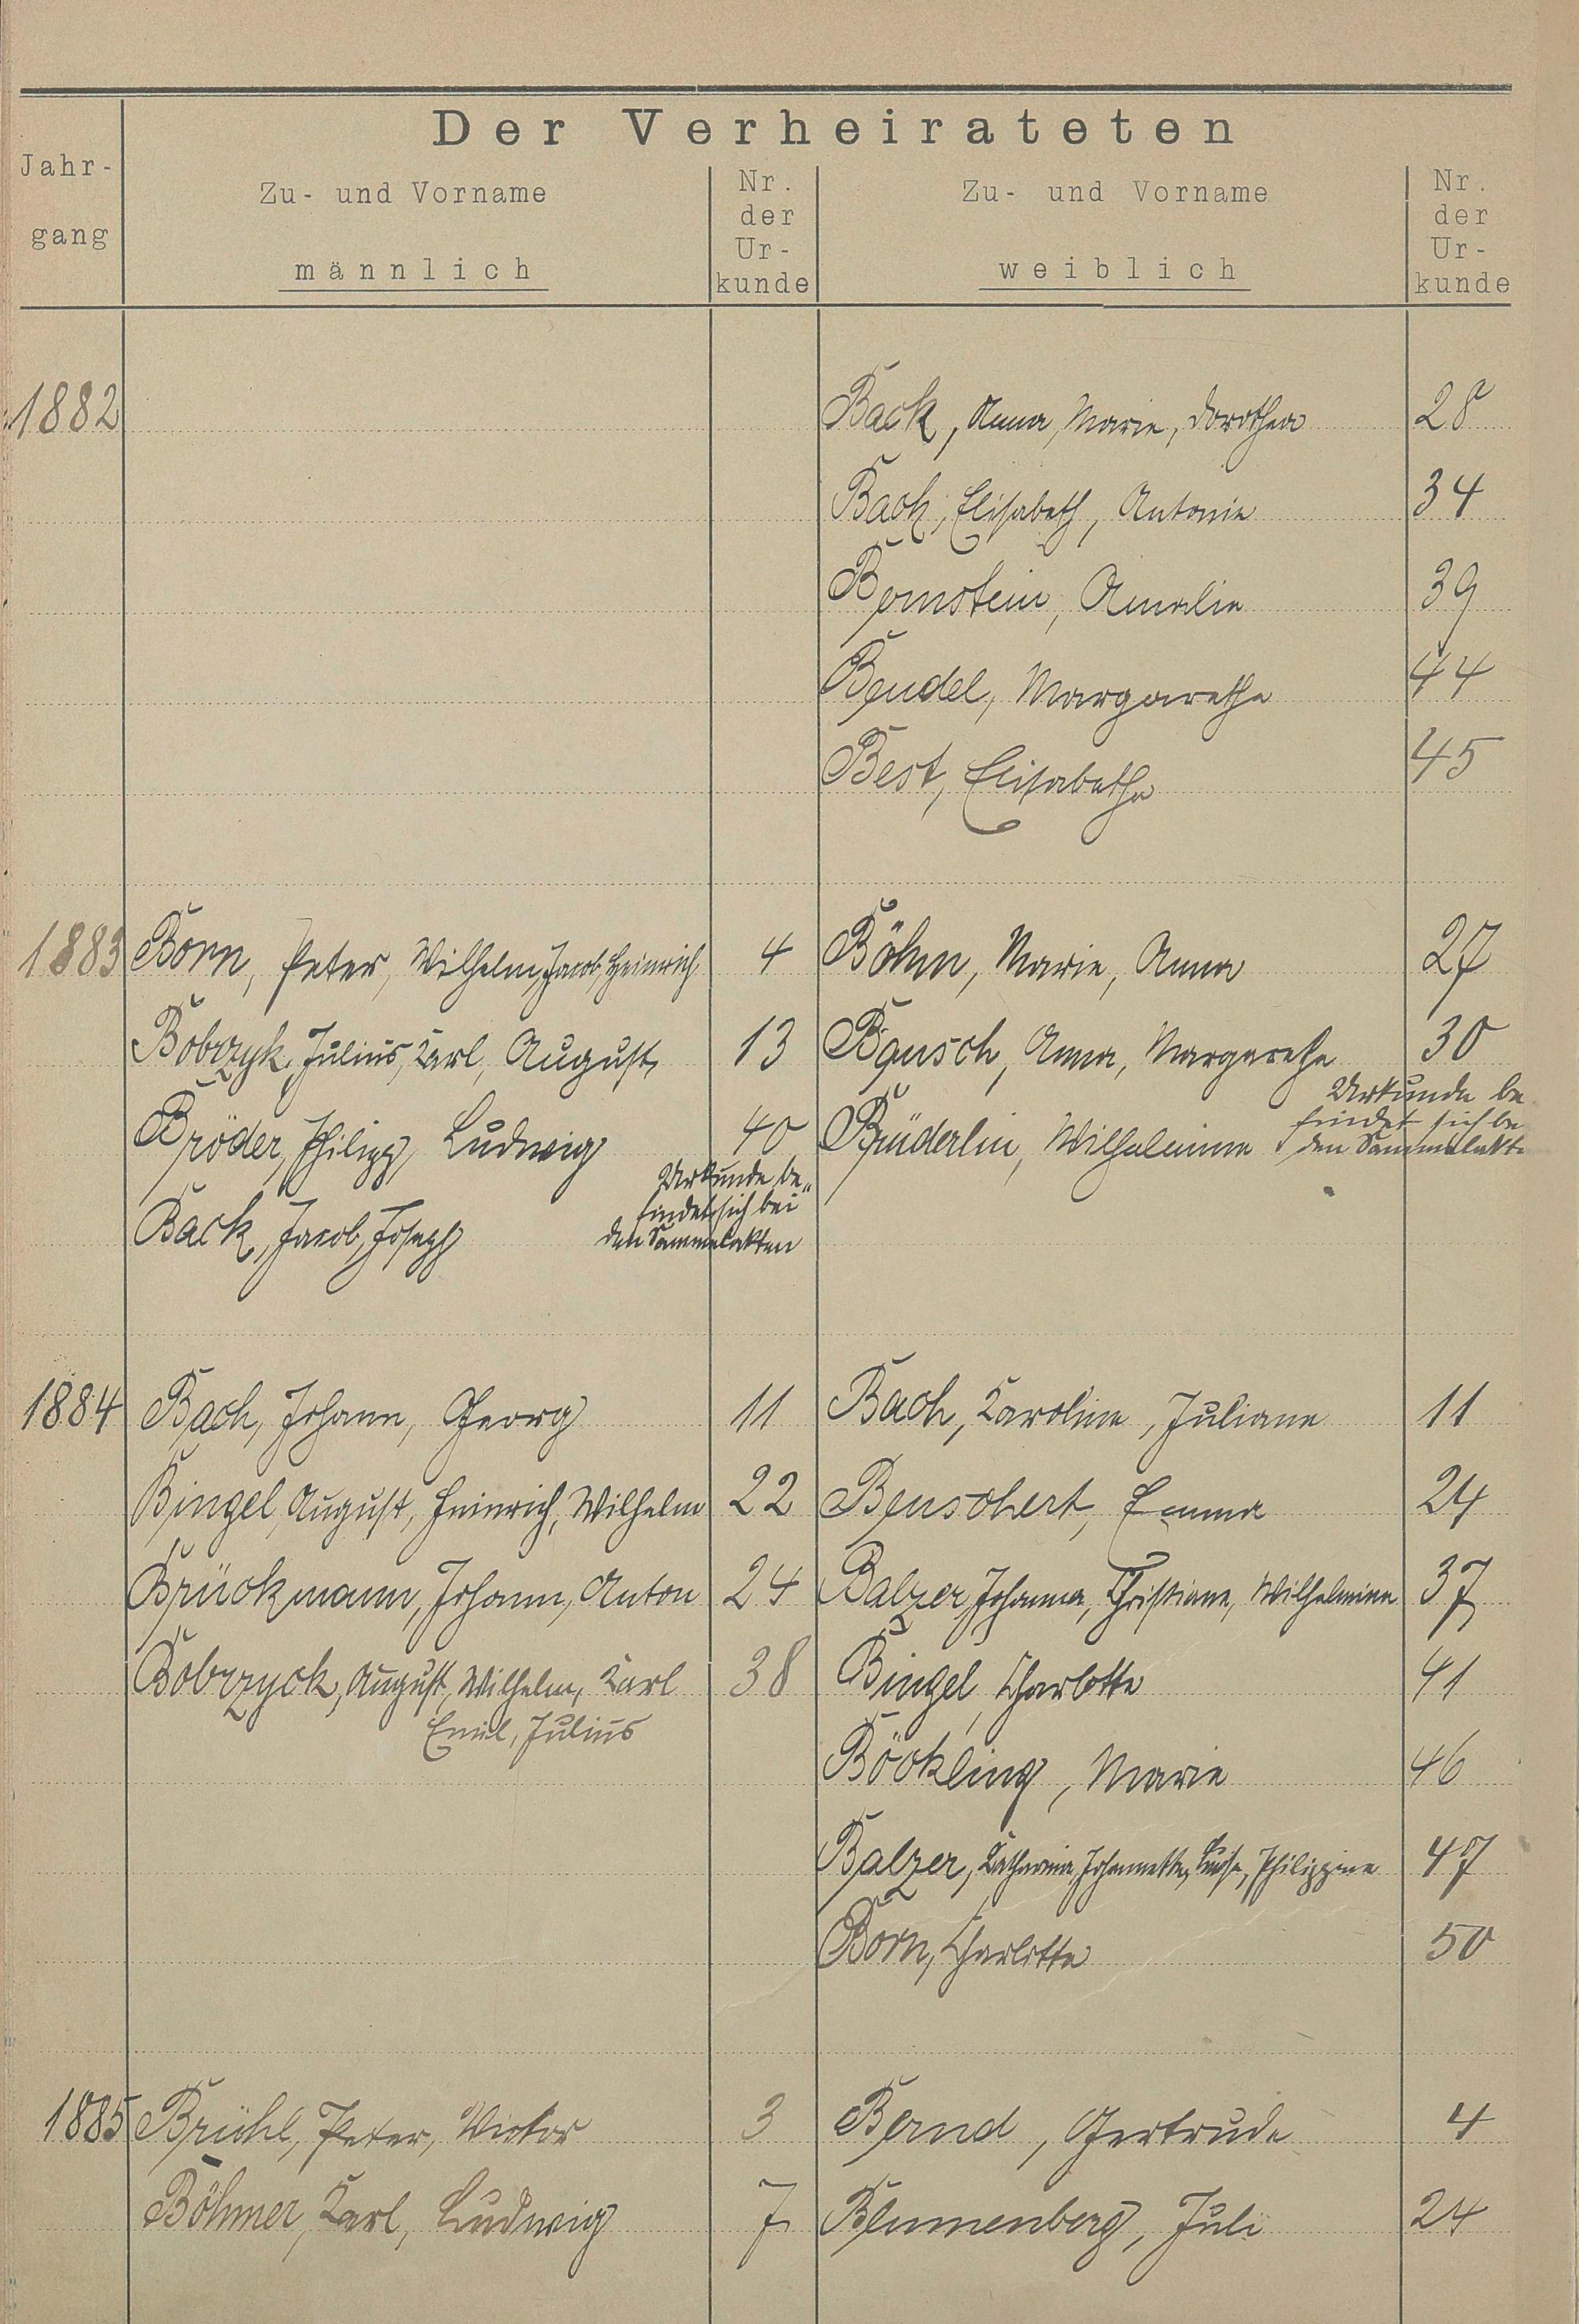 Der Verheirateten
Jahr-
gang
Zu- und Vorname
männlich
Nr.
der
Ur-
kunde
Zu- und Vorname
weiblich
Nr.
der
Ur-
kunde
1882 Back, Anna, Marie, Dorothea 28
Bach, Elisabeth, Antonie 34
Bernstein, Amalie 39
Bendel, Margarethe 44
Best, Elisabetha 45
1883 Born, Peter, Wilhelm, Jacob, Heinrich 4 Böhm, Marie, Anna 27
Bobrzyk, Julius, Karl, August, 13 Bausch, Anna, Margarethe 30
Bröder, Philipp, Ludwig 40 Brüderlin, Wilhelmine Urkunde be
findet sich be
den Sammelakte
Back, Jacob, Joseph Urkunde be-
findet sich bei
den Sammelakten
1884 Bach, Johann, Georg 11 Bach, Karoline, Juliane 11
Bingel, August, Heinrich, Wilhelm 22 Beuschert, Emma 24
Brückmann, Johann, Anton 24 Balzer, Johanna, Christiane, Wilhelmine 37
Bobrzyck, August, Wilhelm, Karl 38 Bingel, Charlotte 41
Emil, Julius
Böckling, Marie 46
Balzer, Katharina, Johannette, Luise, Philippine 47
Born, Charlotte 50
1885 Brühl, Peter, Victor 3 Bernd, Gertrude 4
Böhmer, Karl, Ludwig 7 Blumenberg, Juli 24